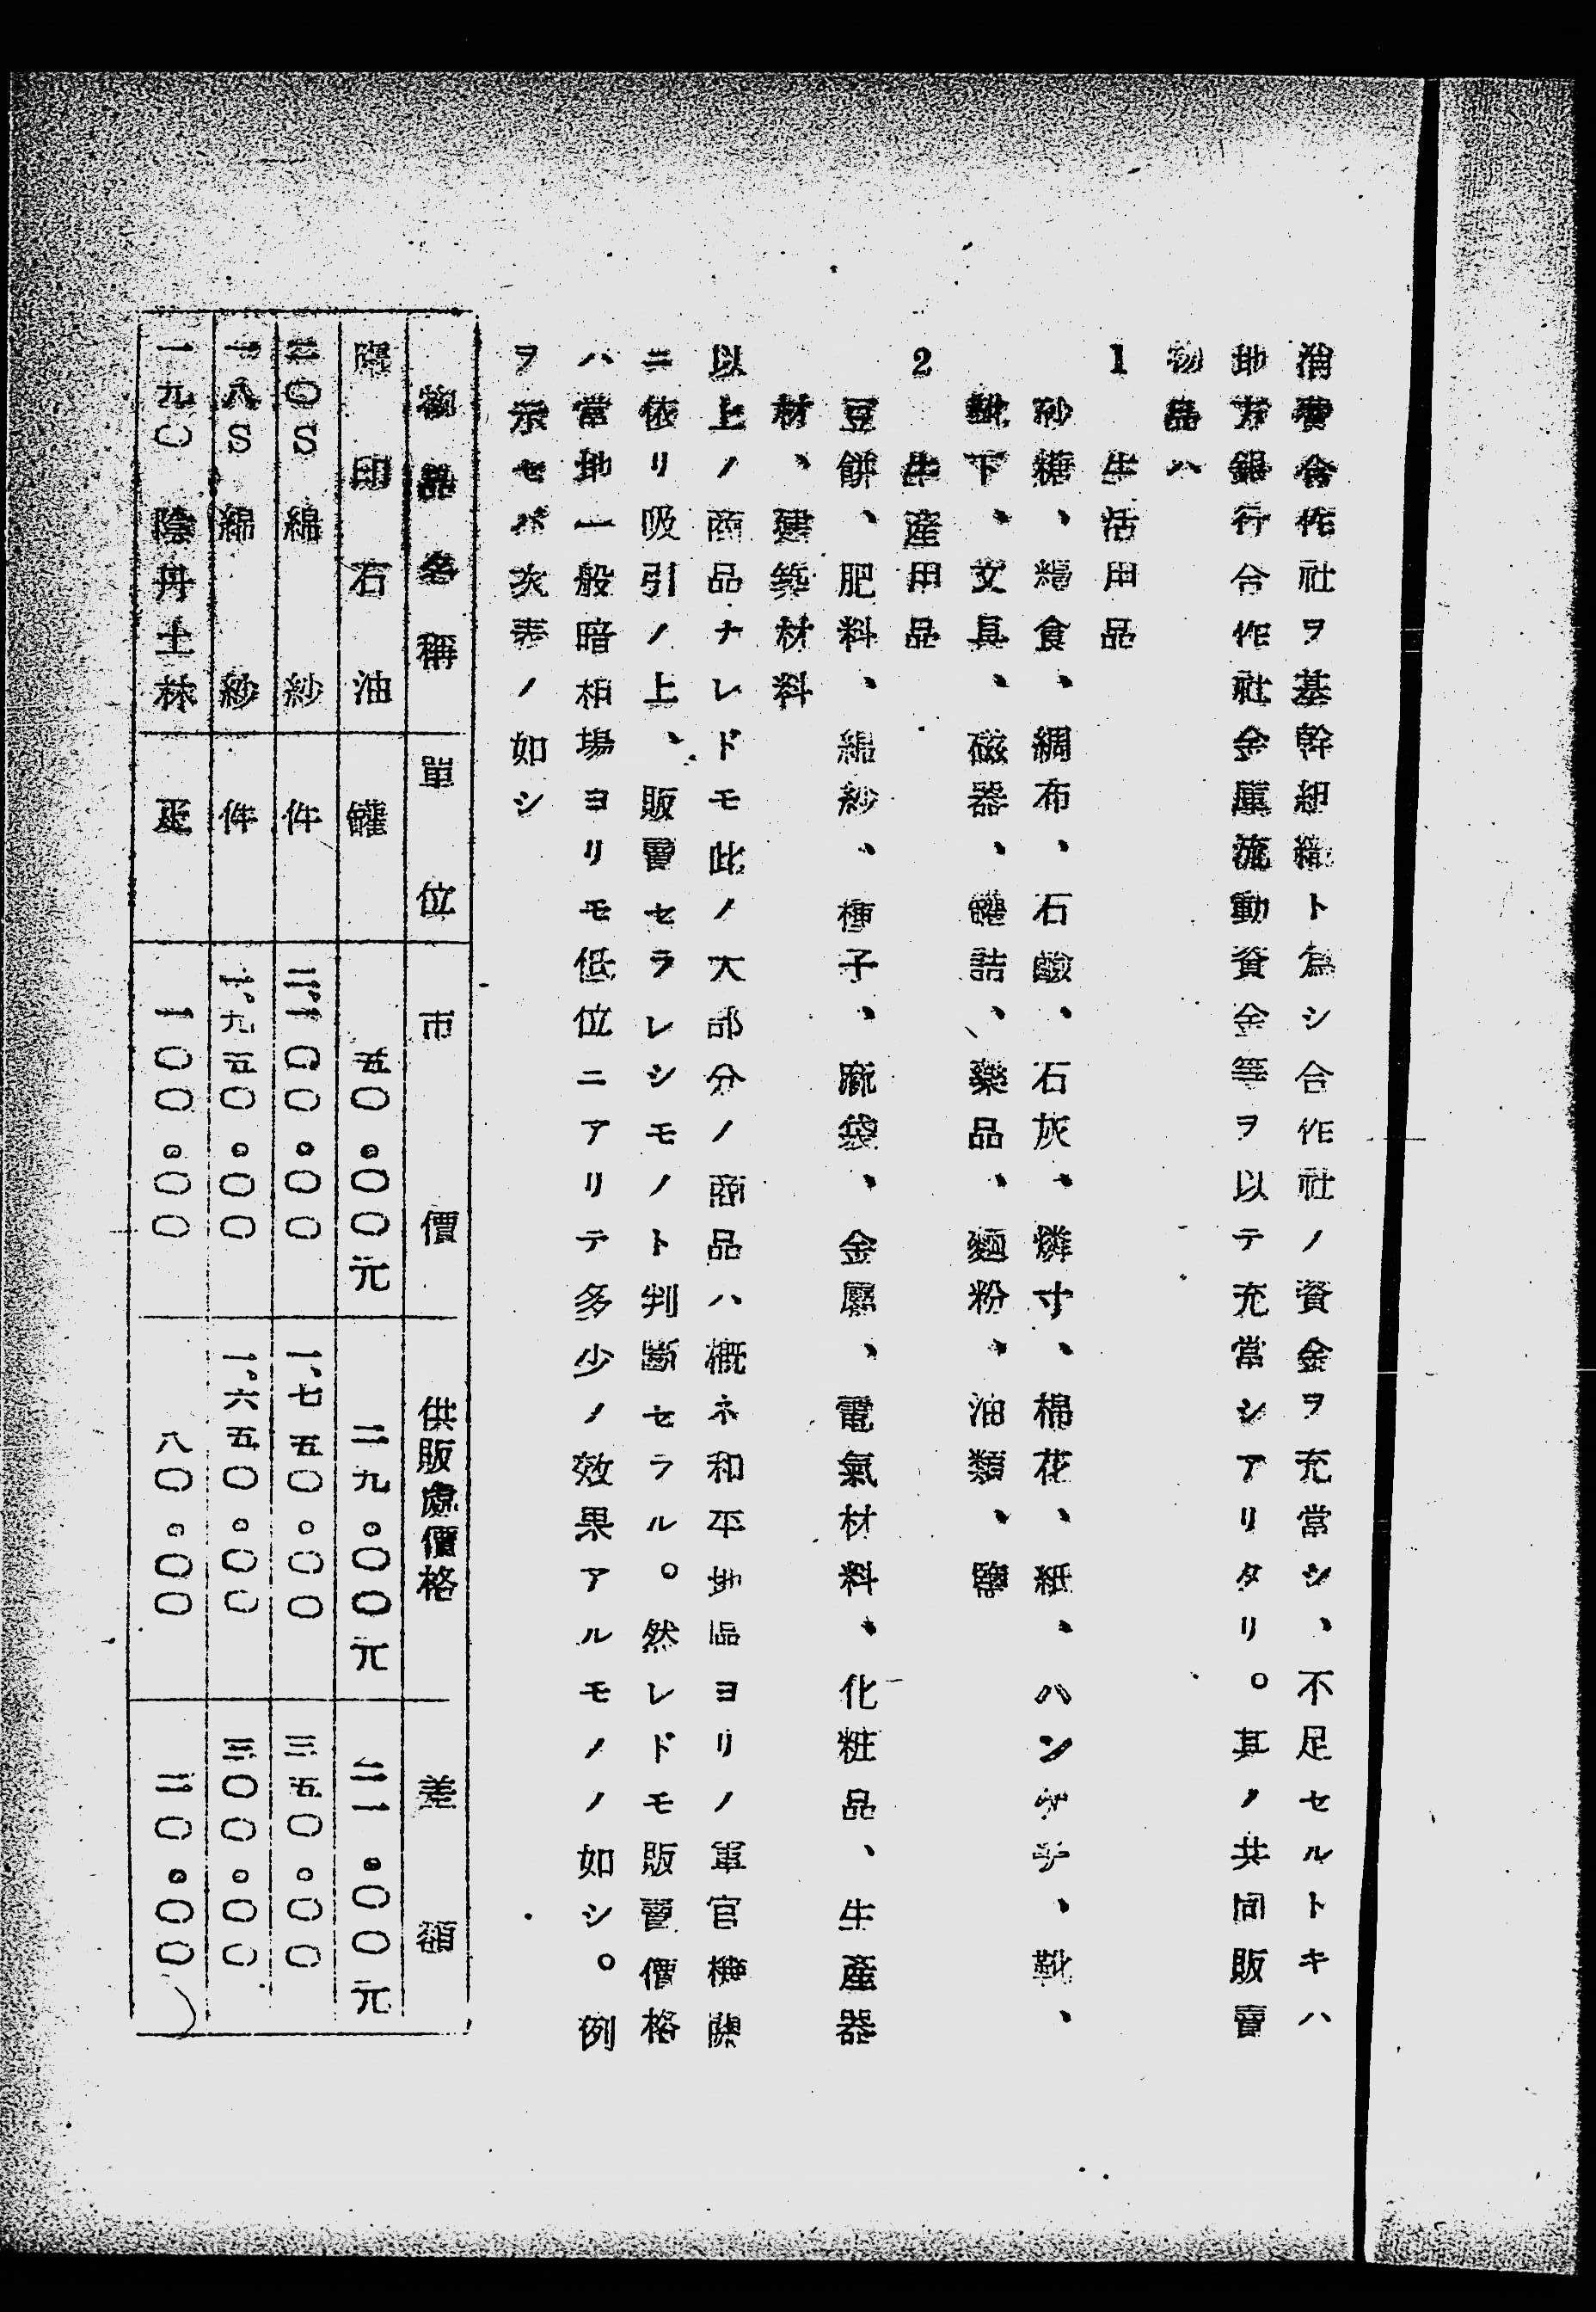 消費合作社ヲ基幹細織ト爲シ合作社ノ資金ヲ充當シ、不足セルトキハ
地方銀行合作社金庫流動資金等ヲ以テ充當シアリタリ。其ノ共同販賣
物品ハ
1 生活用品
砂糖、糧食、綢布、石鹼、石灰、燐寸、棉花、紙、ハンケチ、靴、
靴下、文具、磁器、罐詰、藥品、麵粉、油類、鹽
2 生産用品
豆餅、肥料、綿紗、種子、麻袋、金屬、電氣材料、化粧品、生産器
材、建築材料
以上ノ商品ナレドモ此ノ大部分ノ商品ハ概ネ和平地區ヨリノ軍官機關
ニ依リ吸引ノ上、販賣セラレシモノト判斷セラル。然レドモ販賣價格
ハ當地一般暗相場ヨリモ低位ニアリテ多少ノ效果アルモノノ如シ。例
ヲ示セバ次表ノ如シ
物品名稱 單位 市價 供販處價格 差額
印石油 罐 五〇.〇〇元 二九.〇〇元 二一.〇〇元
二〇S綿紗 件 二.一〇〇.〇〇 一.七五〇.〇〇 三五〇.〇〇
一八S綿紗 件 一.九五〇.〇〇 一.六五〇.〇〇 三〇〇.〇〇
一九〇陰丹士林 疋 一〇〇.〇〇 八〇.〇〇 二〇.〇〇